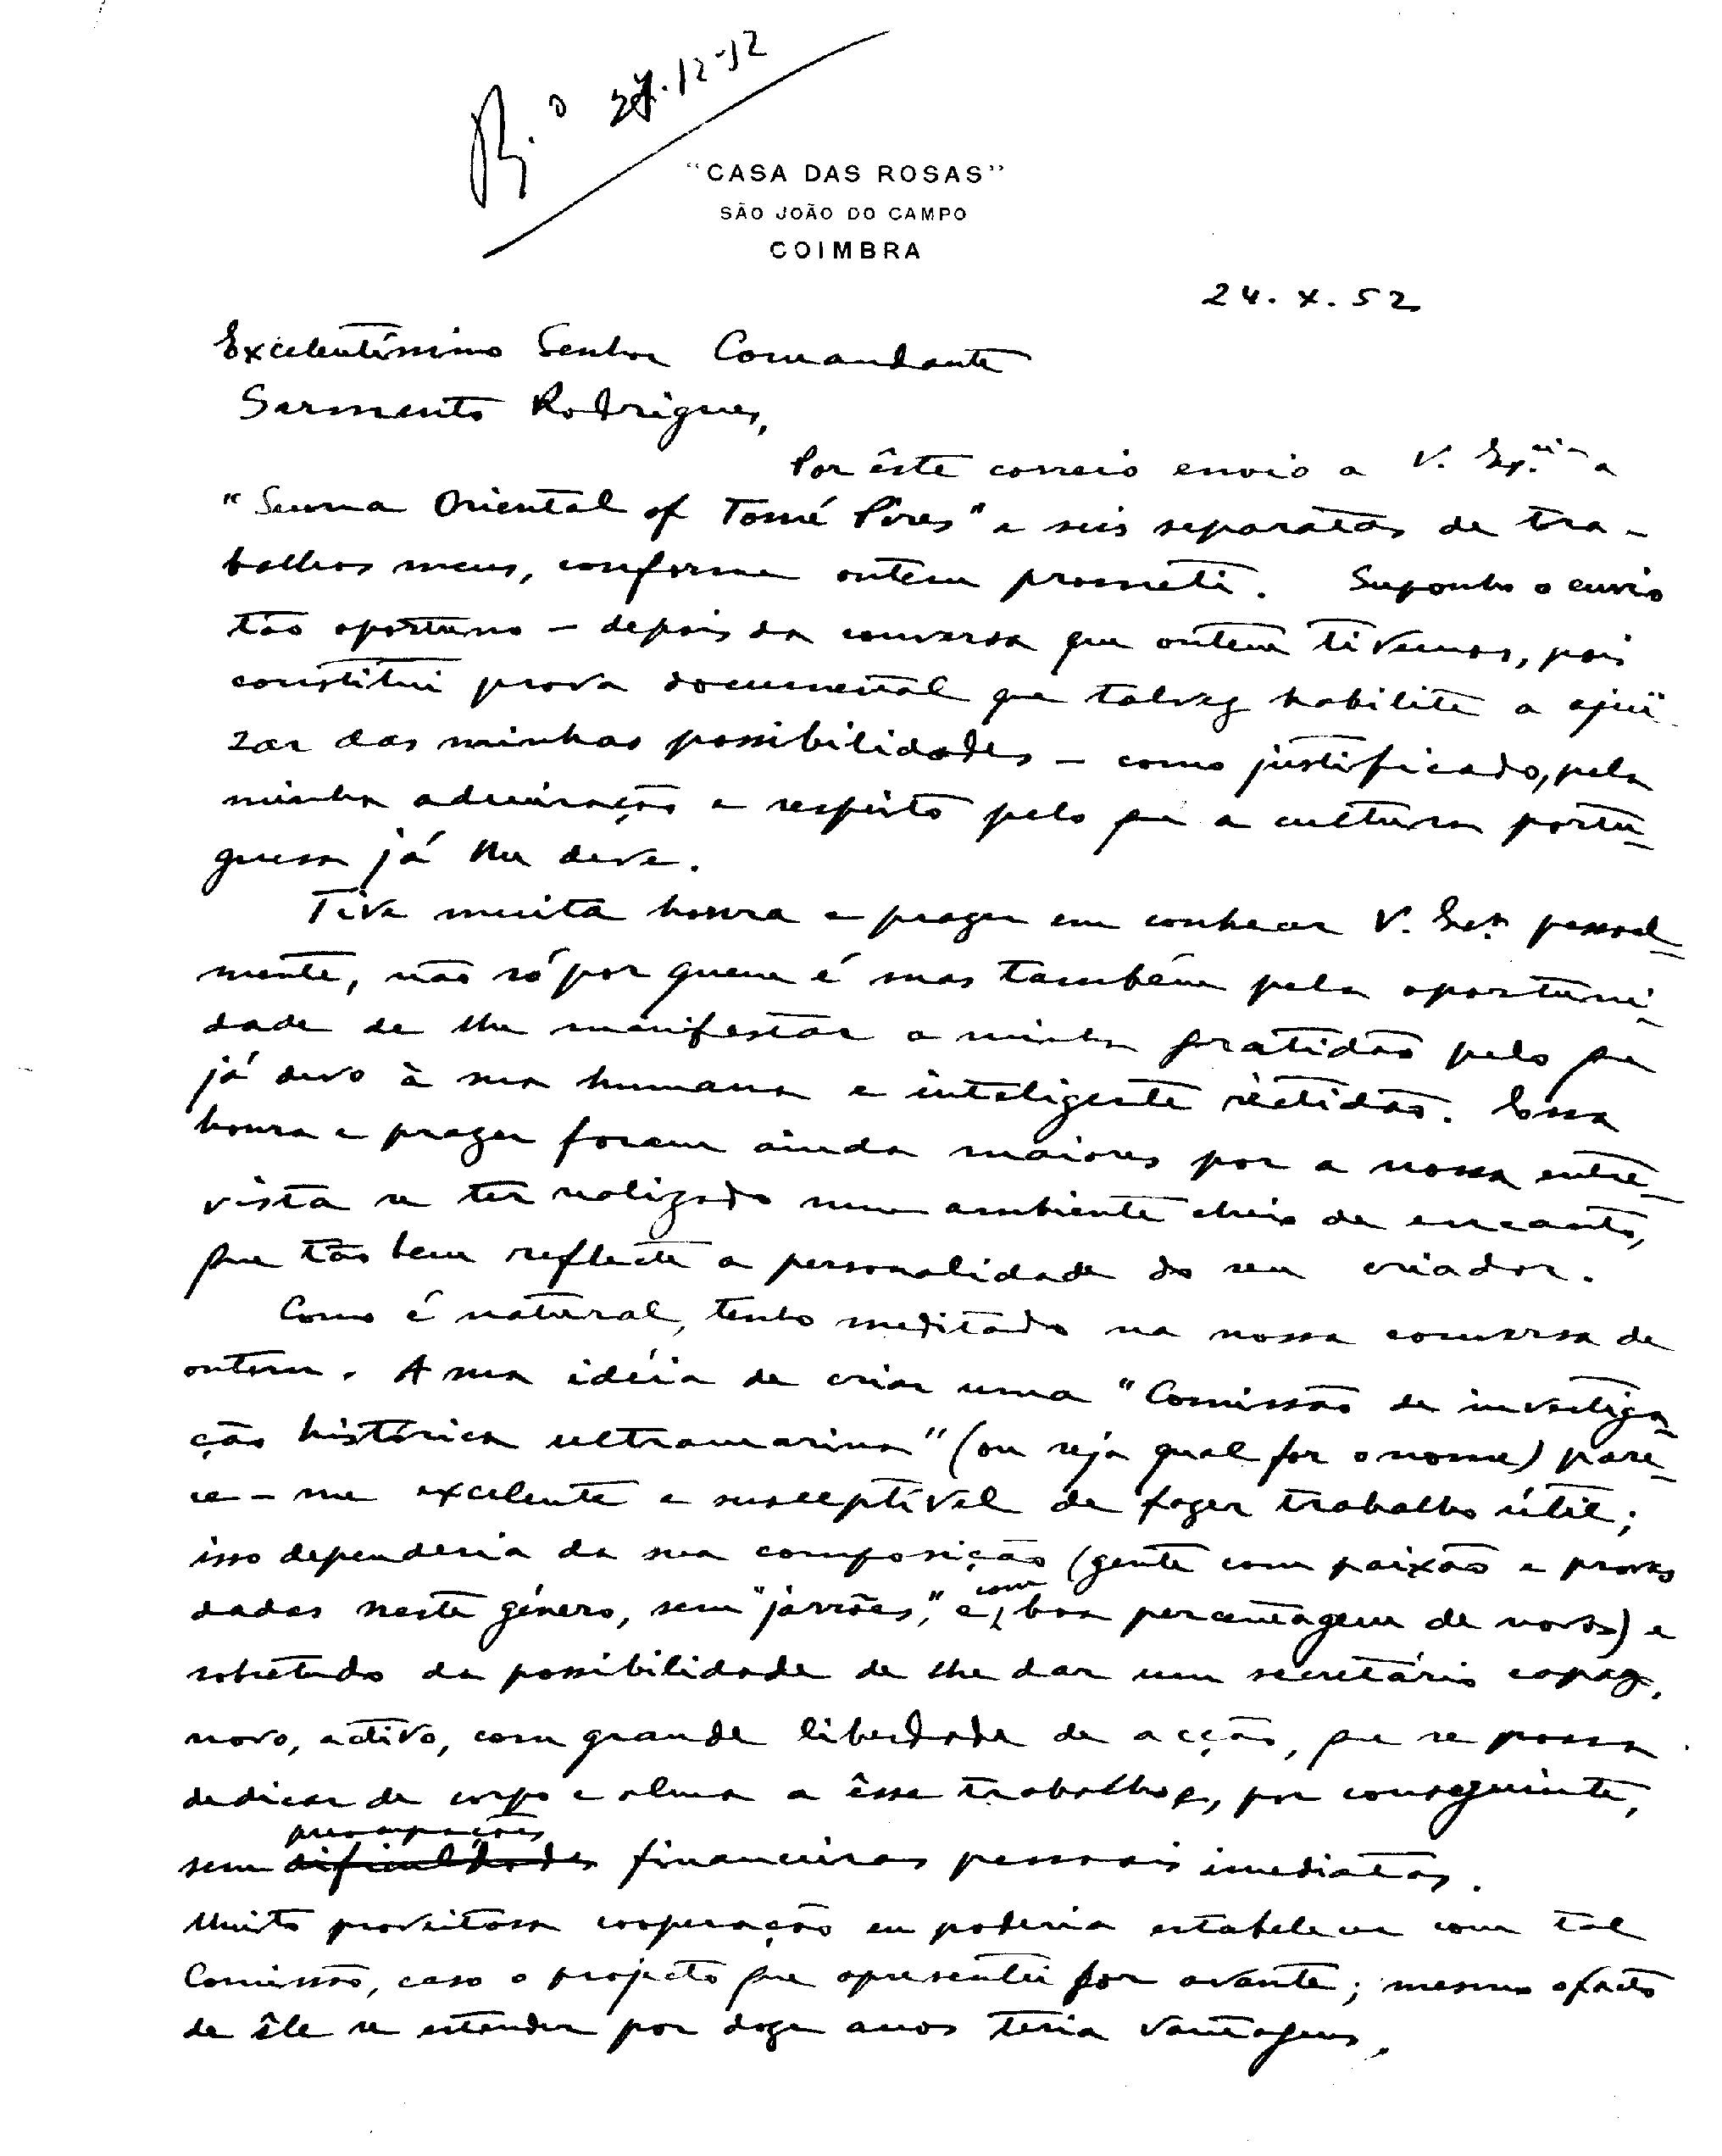 R.º 27.12.52
"CASA DAS ROSAS"
SÃO JOÃO DO CAMPO
COIMBRA
24. X. 52
Excelentíssimo Senhor Comandante
Sarmento Rodrigues,
Por êste correio envio a V. Ex.cia a
"Suma Oriental of Tomé Pires" e seis separatas de tra-
balhos meus, conforme ontem prometi. Suponho o envio
tão oportuno — depois da conversa que ontem tivemos, pois
constitui prova documental que talvez habilite a ajui-
zar das minhas possibilidades — como justificado, pela
minha admiração e respeito pelo que a cultura portu-
guesa já lhe deve.
Tive muita honra e prazer em conhecer V. Ex.a pessoal-
mente, não só por quem é mas também pela oportuni-
dade de lhe manifestar a minha gratidão pelo que
já devo à sua humana e inteligente rectidão. Essa
honra e prazer foram ainda maiores por a nossa entre-
vista se ter realizado num ambiente cheio de encanto,
que tão bem reflecte a personalidade do seu criador.
Como é natural, tenho meditado na nossa conversa de
ontem. A sua idéia de criar uma "Comissão de investiga-
ção histórica ultramarina" (ou seja qual for o nome) pare-
ce-me excelente e susceptível de fazer trabalho útil;
isso dependeria da sua composição (gente com paixão e provas
dadas neste género, sem "jarrões", e com boa percentagem de novos) e
sobretudo da possibilidade de lhe dar um secretário capaz,
novo, activo, com grande liberdade de acção, que se possa
dedicar de corpo e alma a êsse trabalho e, por conseguinte,
sem dificuldades preocupações financeiras pessoais imediatas.
Muito proveitosa cooperação eu poderia estabelecer com tal
Comissão, caso o projecto que apresentei for avante; mesmo o facto
de êle se estender por doze anos teria vantagens,